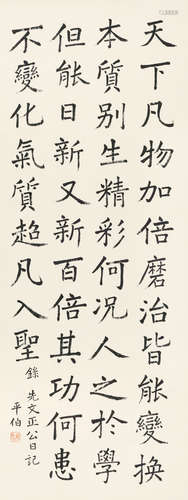 天下凡物加倍磨治皆能變換
本質別生精彩何況人之於學
但能日新又新百倍其功何患
不變化氣質超凡入聖
錄先文正公日記
平伯